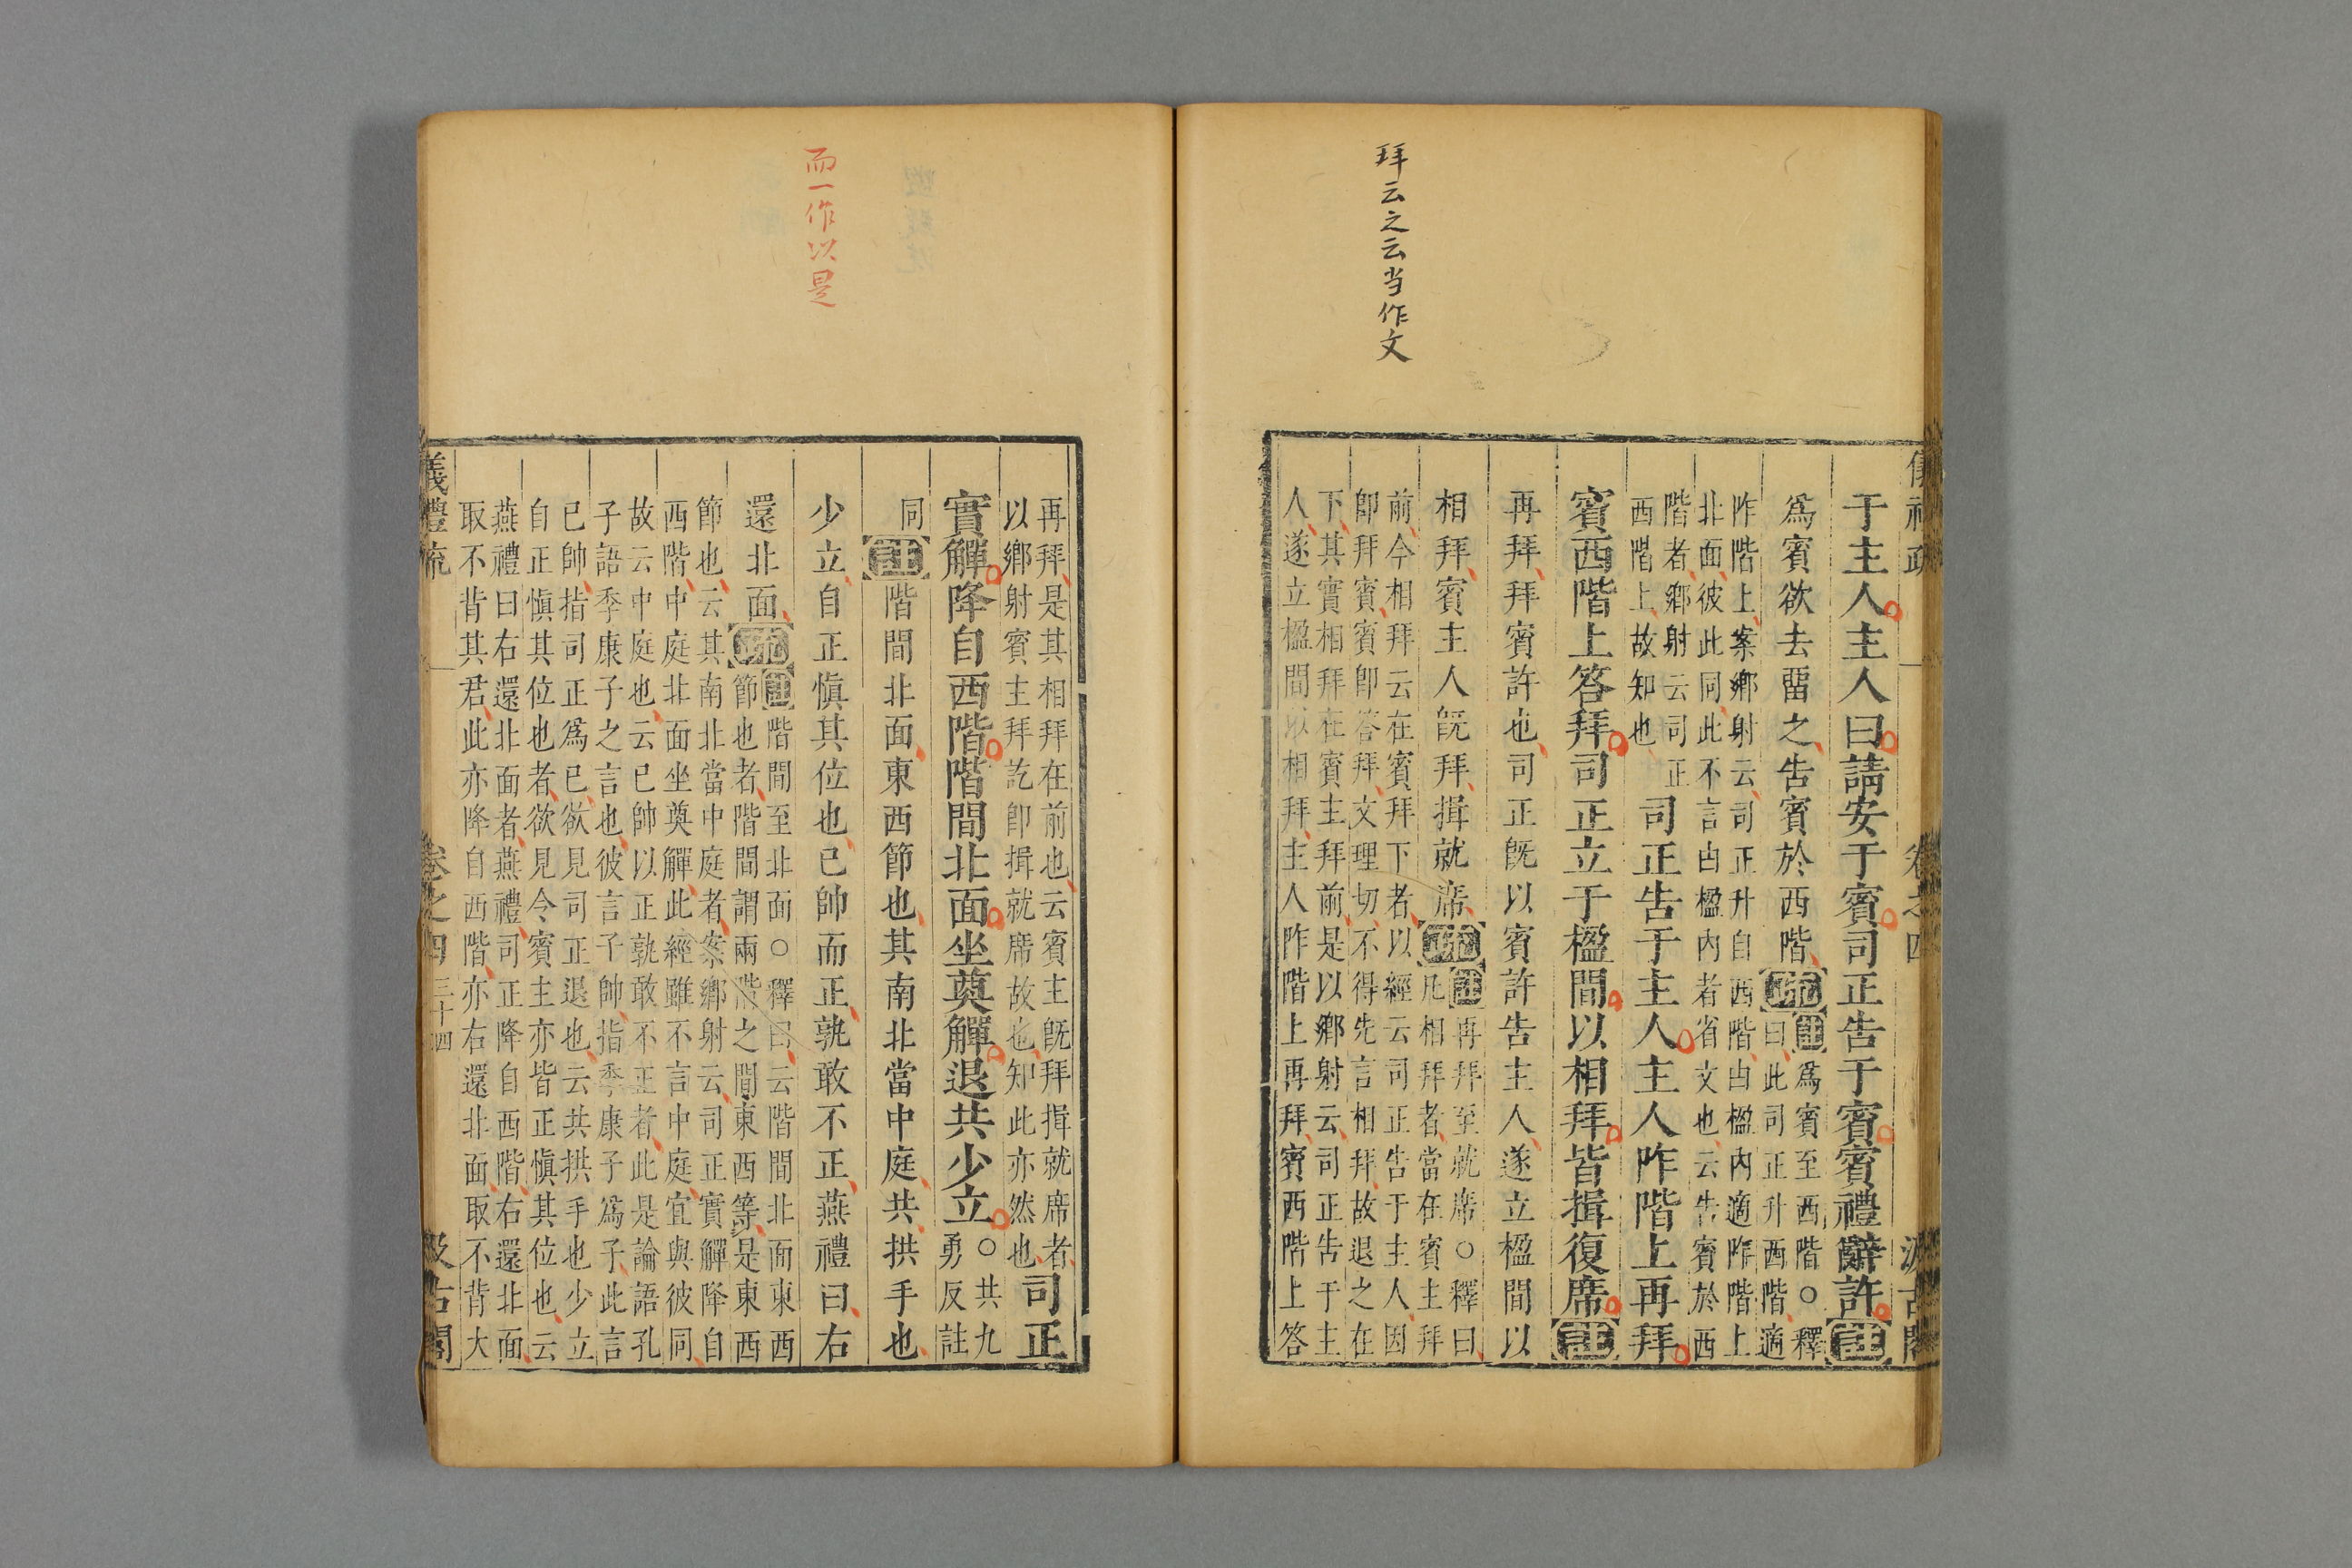 拜云之云当作文
于主人主人曰請安于賓司正告于賓賓禮辭許註
爲賓欲去留之告賓於西階疏註爲賓至西階○釋
曰此司正升西階適
阼階上案鄉射云司正升自西階由楹内適阼階上
北面彼此同此不言由楹内者省文也云告賓於西
階者鄉射云司正
西階上故知也
司正告于主人主人阼階上再拜
賓西階上答拜司正立于楹間以相拜皆揖復席註
再拜拜賓許也司正既以賓許告主人遂立楹間以
相拜賓主人既拜揖就席疏註再拜至就席○釋曰
凡相拜者當在賓主拜
前今相拜云在賓拜下者以經云司正告于主人因
卽拜賓賓卽答拜文理切不得先言相拜故退之在
下其實相拜在賓主拜前是以鄉射云司正告于主
人遂立楹間以相拜主人阼階上再拜賓西階上答
而一作以是
再拜是其相拜在前也云賓主既拜揖就席者
以鄉射賓主拜訖卽揖就席故也知此亦然也
司正
實觶降自西階階間北面坐奠觶退共少立○共九
勇反註
同註階間北面東西節也其南北當中庭共拱手也
少立自正愼其位也已帥而正孰敢不正燕禮曰右
還北面疏註階間至北面○釋曰云階間北面東西
節也者階間謂兩階之間東西等是東西
節也云其南北當中庭者案鄉射云司正實觶降自
西階中庭北面坐奠觶此經雖不言中庭宜與彼同
故云中庭也云已帥以正孰敢不正者此是論語孔
子語季康子之言也彼言子帥指季康子爲子此言
已帥指司正爲已欲見司正退也云共拱手也少立
自正愼其位也者欲見今賓主亦皆正愼其位也云
燕禮曰右還北面者燕禮司正降自西階右還北面
取不背其君此亦降自西階亦右還北面取不背大
儀禮疏 卷之四 三十四 汲古閣